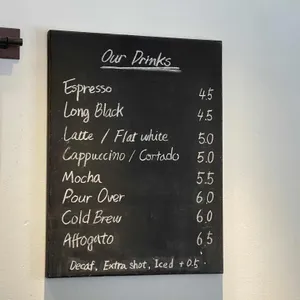 Our Drinks
Espresso 4.5
Long Black 4.5
Latte / Flat white 5.0
Cappuccino / Cortado 5.0
Mocha 5.5
Pour Over 6.0
Cold Brew 6.0
Affogato 6.5
Decaf, Extra shot, Iced +0.5